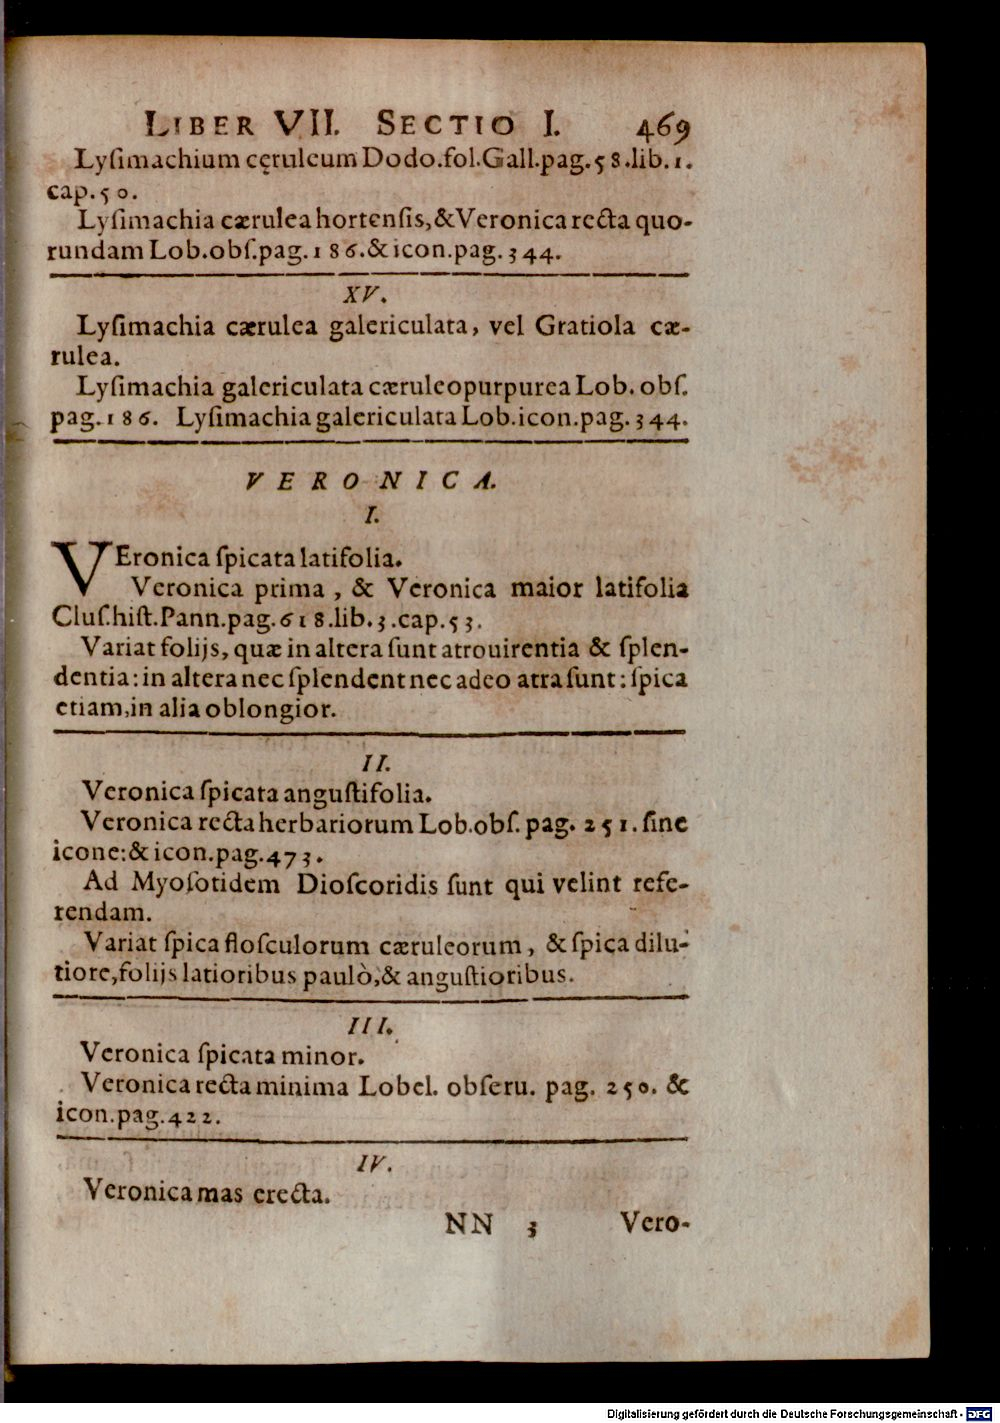 LIBER VII. SECTIO I. 469
Lyſimachium cęruleum Dodo.fol.Gall.pag.58.lib.1.
cap.50.
Lyſimachia cærulea hortenſis,&Veronica recta quo-
rundam Lob.obſ.pag.186.& icon.pag.344.
XV.
Lyſimachia cærulea galericulata, vel Gratiola cæ-
rulea.
Lyſimachia galericulata cæruleopurpurea Lob. obſ.
pag.186. Lyſimachia galericulata Lob.icon.pag.344.
VERONICA.
I.
VEronica ſpicata latifolia.
Veronica prima, & Veronica maior latifolia
Cluſ.hiſt.Pann.pag.618.lib.3.cap.53.
Variat folijs, quæ in altera ſunt atrouirentia & ſplen-
dentia: in altera nec ſplendent nec adeo atra ſunt: ſpica
etiam,in alia oblongior.
II.
Veronica ſpicata anguſtifolia.
Veronica recta herbariorum Lob.obſ. pag. 251. ſine
icone:& icon.pag.473.
Ad Myoſotidem Dioſcoridis ſunt qui velint refe-
rendam.
Variat ſpica floſculorum cæruleorum, & ſpica dilu-
tiore,folijs latioribus paulò,& anguſtioribus.
III.
Veronica ſpicata minor.
Veronica recta minima Lobel. obſeru. pag. 250. &
icon.pag.422.
IV.
Veronica mas erecta.
NN 3 Vero-
Digitalisierung gefördert durch die Deutsche Forschungsgemeinschaft - DFG